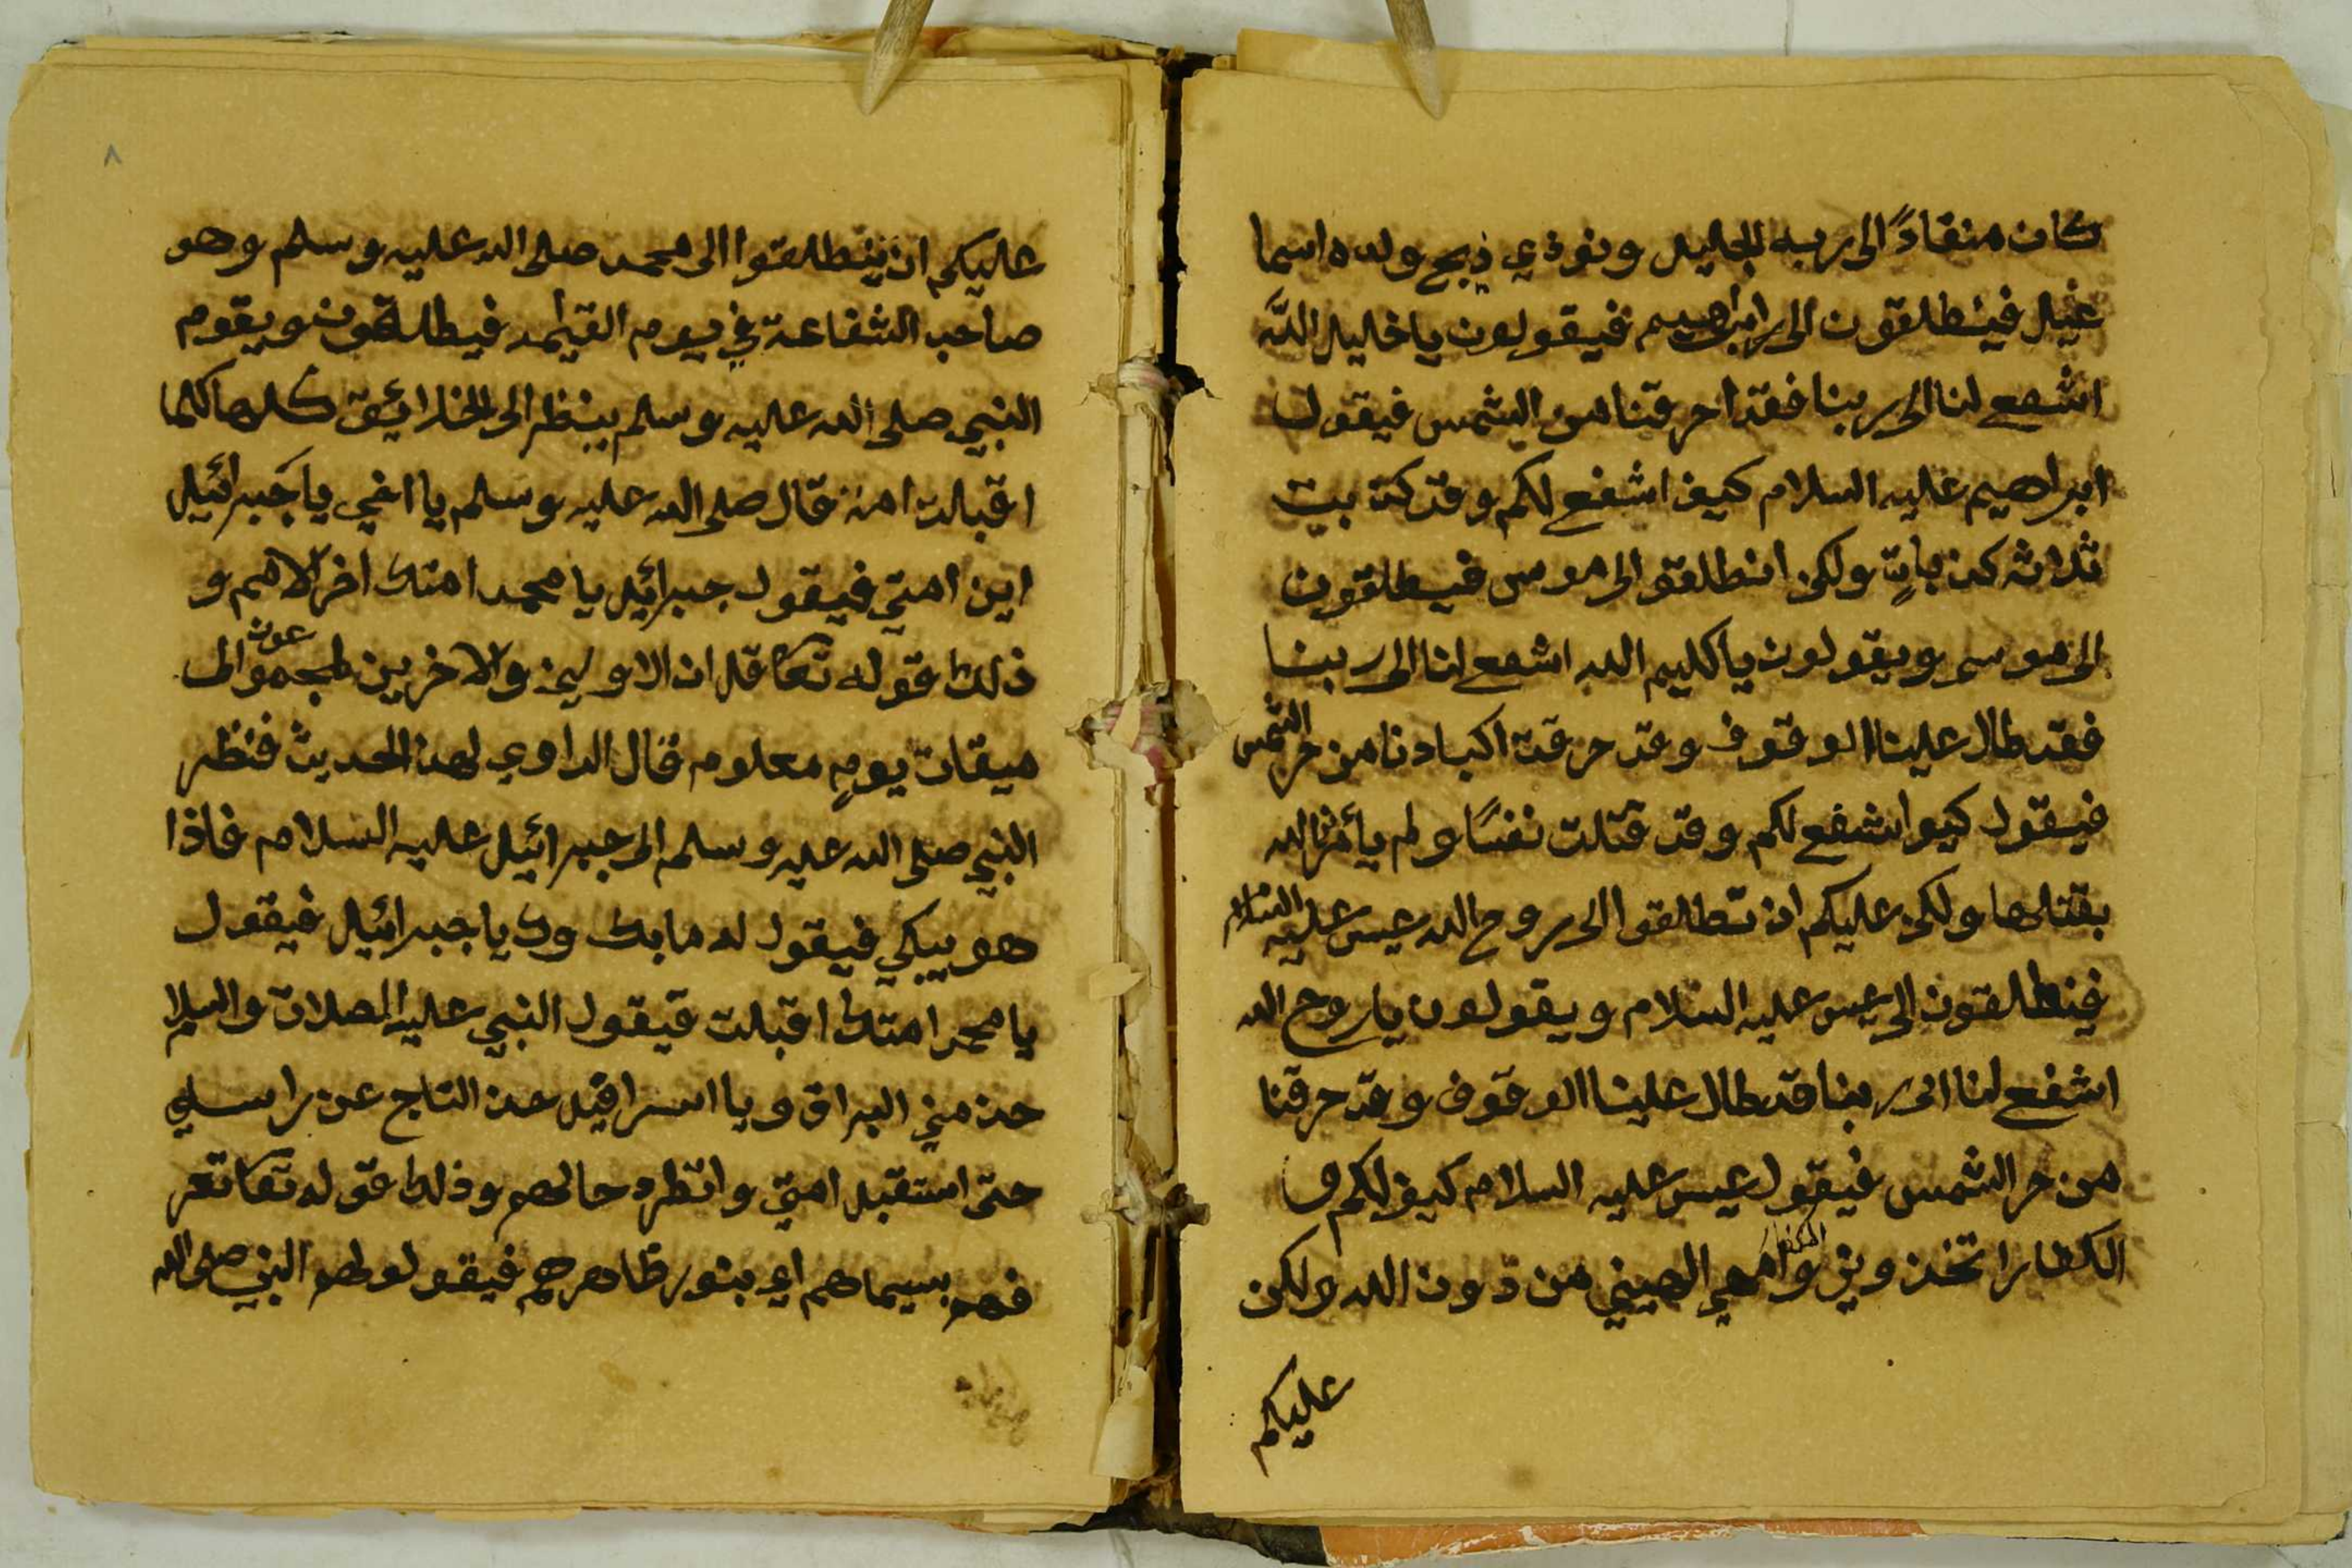 كان منقادً الى ربه الجليل ونوذي ذبح ولده اسما
عيل فينطلقون الى ابراهيم فيقولون يا خليل الله
اشفع لنا الى ربنا فقد احرقتنا الشمس فيقول
ابراهيم عليه السلام كيف اشفع لكم وقد كذبت
ثلاثه كذبات ولكن انطلقو الى موسى فيطلقون
الى موسى ويقولون يا كليم الله اشفع لنا الى ربنا
فقد طال علينا الوقوف وقد حرقت اكبادنا من حر الشمس
فيقول كيو اشفع لكم وقد قتلت نفسًا ولم يأمر الله
بقتلها ولكن عليكم ان تطلقوا الى روح الله عيسى عليه السلام
فينطلقون الى عيسى عليه السلام ويقولون يا روح الله
اشفع لنا الى ربنا قد طال علينا الوقوف وقد حرقنا
من حر الشمس فيقول عيسى عليه السلام كيف لكم و
الكفار اتخذوني وامي الهيني من دون الله ولكن
عليكم
٨
عليكم ان ينطلقوا الى محمد صلى الله عليه وسلم وهو
صاحب الشفاعة في يوم القيمه فيطلقون ويقوم
النبي صلى الله عليه وسلم ينظر الى الخلائق كلها كلما
اقبلت امة قال صلى الله عليه وسلم يا اخي يا جبرائيل
اين امتي فيقول جبرائيل يا محمد امتك اخر الامم و
ذلك قوله تعا قل ان الاولين والاخرين لمجموعون الى
ميقات يومٍ معلوم قال الراوي لهذ الحديث فنظر
النبي صلى الله عليه وسلم الى جبرائيل عليه السلام فاذا
هو يبكي فيقول له ما بك يا جبرائيل فيقول
يا محمد امتك اقبلت فيقول النبي عليه الصلات والسلام
خذ مني البراق ويا اسرافيل خذ التاج عن راسي
حتى استقبل امتي وانظر حالهم وذلك قوله تعا تعر
فهم بسيماهم اي بنور ظاهرهم فيقول لهم النبي صلى الله